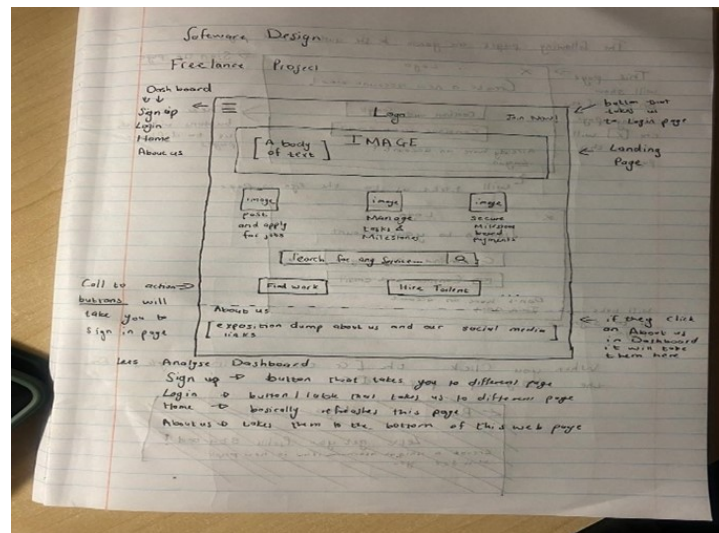 Software Design
Freelance Project
Dashboard
Sign up
Login
Home
About us
Logo
Join Now!
button that
takes us
to Login page
[A body
of text]
IMAGE
Landing
Page
image
post
and apply
for jobs
image
Manage
tasks &
Milestones
image
Secure
Milestone
based
payments
[Search for any service...
Find work
Hire Talent
Call to action
buttons will
take you to
sign in page
About us
[exposition dump about us and our social media
links]
if they click
on About us
in Dashboard
it will take
them here
Lets Analyse Dashboard
Sign up → button that takes you to different page
Login → button / that takes us to different page
Home → basically refreshes this page
About us → takes them to the bottom of this web page